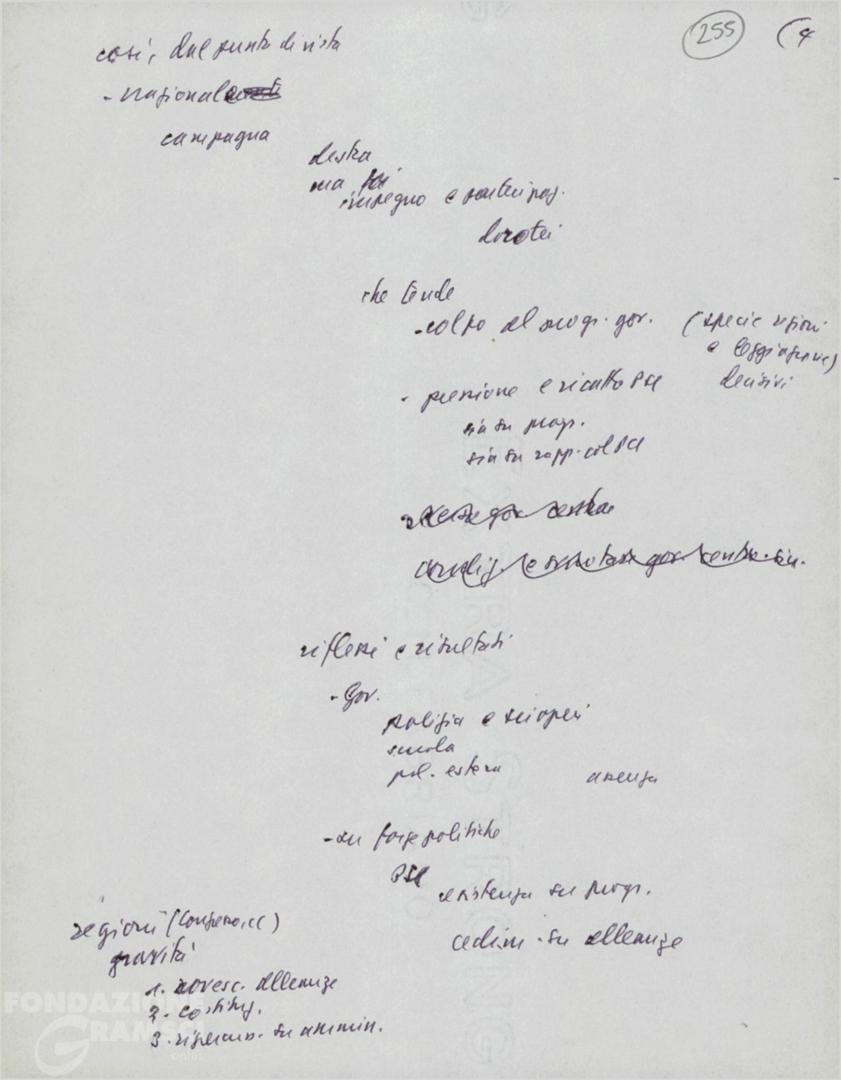 255 (4
così, dal punto di vista
- nazionale
campagna
destra
ma poi
impegno e partecipaz.
dorotei
che tende
- colpo al progr. gov. (specie regioni
e
decisivi
- pressione e ricatto PSI
sia su progr.
sia su rapp. col PCI
riflessi e risultati
- Gov.
polizia e scioperi
scuola
pol. estera assenza
- su forze politiche
PSI
resistenza su progr.
cedim. su alleanze
regioni
gravità
1. rovesc. alleanze
2. costituz.
3. su ammin.
FONDAZIONE
GRAMSCI
onlus
EXTRA STRONG